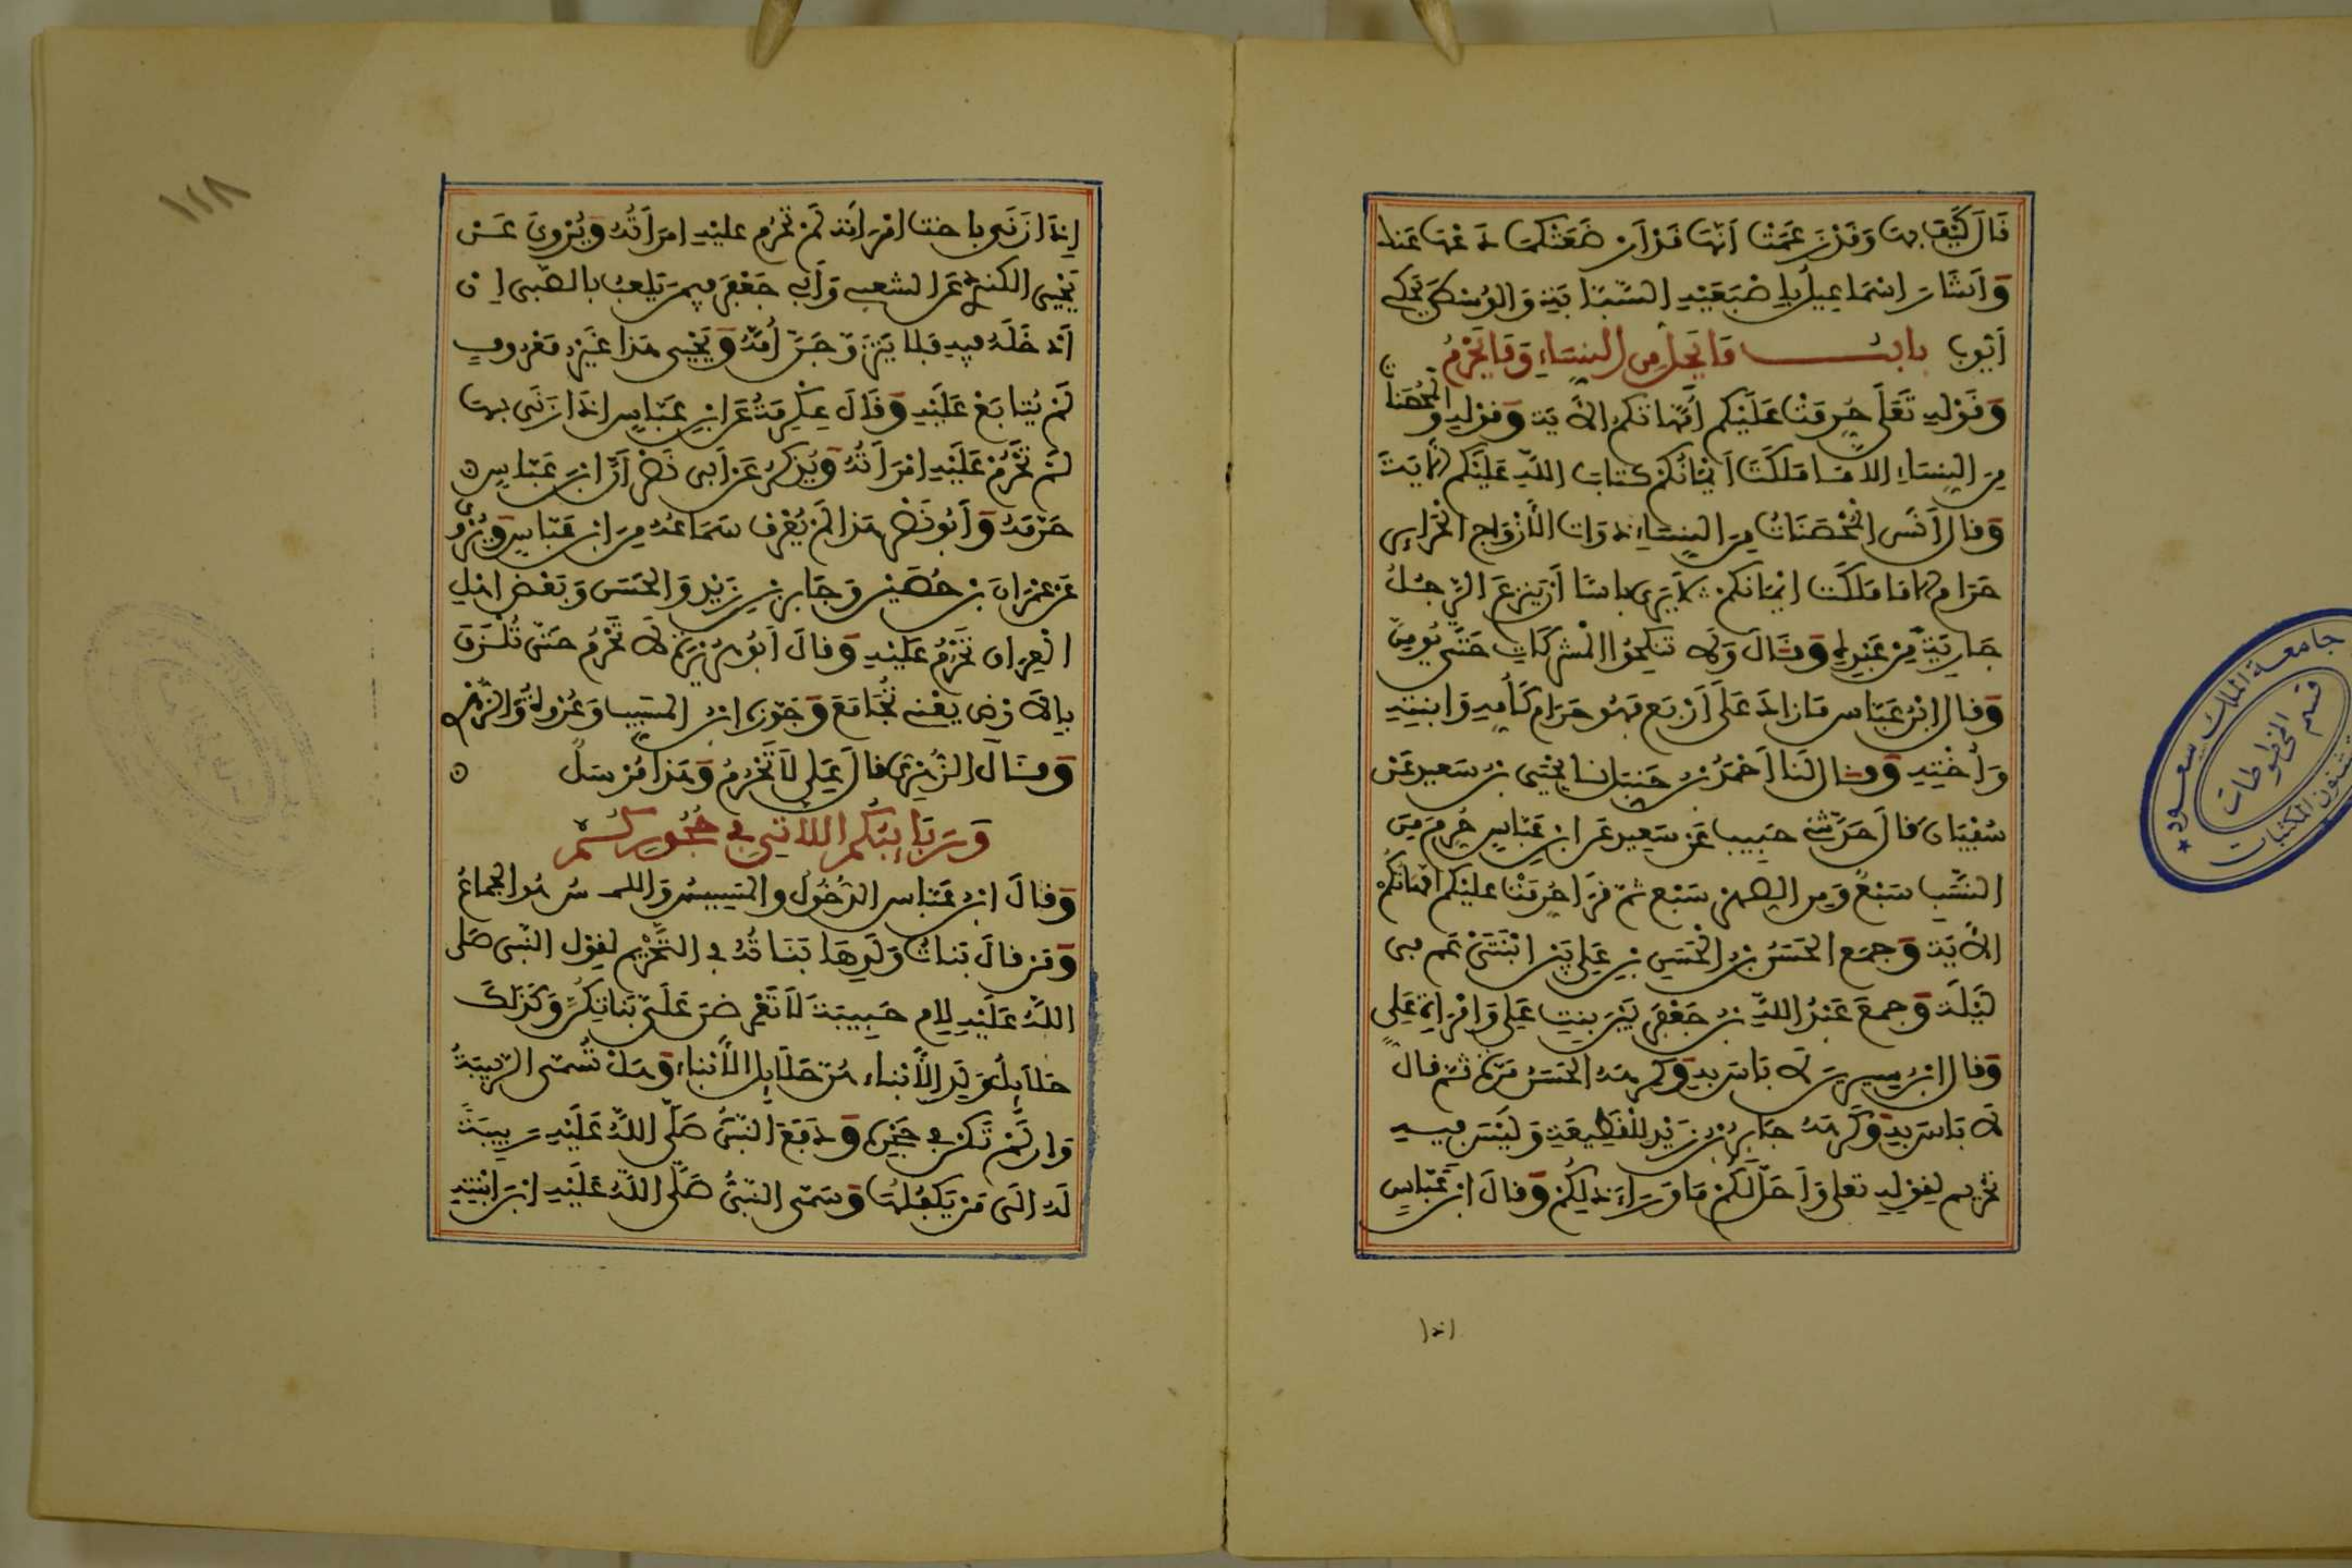 قَالَ كَيْفَ بها وَقَدْ زَعَمَتْ أَنَّهَا قَدْ أَرْضَعَتْكُمَا دَعْهَا عَنْكَ
وَأَشَارَ إِسْمَاعِيلُ بِإِصْبَعَيْهِ السَّبَّابَةِ وَالْوُسْطَى يَحْكِي
أَيُّوبَ بابُ مَا يَحِلُّ مِنَ النِّسَاءِ وَمَا يَحْرُمُ
وَقَوْلِهِ تَعَلَى حُرِّمَتْ عَلَيْكُمْ أُمَّهَاتُكُم الآيَة وَقَوْلِهِ وَالْمُحْصَنَاتُ
مِنَ النِّسَاءِ إِلَّا مَا مَلَكَتْ أَيْمَانُكُمْ كِتَابَ اللَّهِ عَلَيْكُم الآيَةَ
وَقَالَ أَنَسٌ الْمُحْصَنَاتُ مِنَ النِّسَاءِ ذَوَات الأَزْوَاجِ الْحَرَائِرُ
حَرَام إلا مَا مَلَكَتْ أَيْمَانُكُمْ لَا يَرَى بَاسًا أَنْ يَنْزِعَ الرَّجُلُ
جَارِيَتَهُ مِنْ عَبْدِهِ وَقَالَ وَلَا تَنْكِحُوا الْمُشْرِكَاتِ حَتَّى يُومِنَّ
وَقَالَ ابْنُ عَبَّاس مَا زَادَ عَلَى أَرْبَع فَهُوَ حَرَام كَأُمِّهِ وَابْنَتِهِ
وَأُخْتِهِ وَقَالَ لَنَا أَحْمَدُ بْنُ حَنْبَل نا يَحْيَى بْنُ سَعِيدٍ عَنْ
سُفْيَانَ قَالَ حَدَّثَنِي حَبِيب عَنْ سَعِيد عَن ابْنِ عَبَّاسٍ حُرِّمَ مِنَ
النَّسَبِ سَبْعٌ وَمِنَ الصِّهْرِ سَبْع ثُمَّ قَرَأَ حُرِّمَتْ عَلَيْكُم أُمَّهَاتُكُمُ
الآيَةَ وَجَمَعَ الْحَسَنُ بْنُ الْحَسَنِ بْنِ عَلِي بَيْنَ ابْنَتَيْ عَم فِي
لَيْلَة وَجَمَعَ عَبْدُ اللَّهِ بْنُ جَعْفَرٍ بَيْنَ بِنْتِ عَلِي وَامْرَأَةِ عَلِي
وَقَالَ ابْنُ سِيرِينَ لَا بَاسَ بِهِ وَكَرِهَهُ الْحَسَنُ مَرَّة ثُمَّ قَالَ
لَا بَاسَ بِهِ وَكَرِهَهُ جَابِرُ بْنُ زَيْدٍ لِلْقَطِيعَةِ وَلَيْسَ فِيهِ
تَحْرِيم لِقَوْلِهِ تَعَلى وَأُحِلَّ لَكُمْ مَا وَرَاءَ ذَلِكُمْ وَقَالَ ابْنُ عَبَّاسٍ
اذا
١٢٨
إِذَا زَنَى بِأُخْتِ امْرَأَتِهِ لَمْ تَحْرُم عَلَيْهِ امْرَأَتُهُ وَيُرْوَى عَنْ
يَحْيَى الْكِنْدِي عَنِ الشَّعْبِي وَأَبِي جَعْفَرٍ فِيمَنْ يَلْعَبُ بِالصَّبِي إِنْ
أَدْخَلَهُ فِيهِ فَلَا يَتَزَوَّجَنَّ أُمَّهُ وَيَحْيَى هَذَا غَيْرُ مَعْرُوفٍ
لَمْ يُتَابَعْ عَلَيْهِ وَقَالَ عِكْرِمَةُ عَن ابْنِ عَبَّاسٍ إِذَا زَنَى بِهَا
لَمْ تَحْرُمْ عَلَيْهِ امْرَأَتُهُ وَيُذْكَرُ عَنْ أَبِي نَصْر أَنَّ ابْنَ عَبَّاسٍ
حَرَّمَهُ وَأَبُو نَصْر هَذَا لَمْ يُعْرَف سَمَاعُهُ مِنَ ابْنِ عَبَّاسٍ وَيُرْوَى
عَنْ عِمْرَانَ بْنِ حُصَيْنٍ وَجَابِرِ بْنِ زَيْدٍ وَالْحَسَنِ وَبَعْضِ أَهْلِ
الْعِرَاقِ تَحْرُمُ عَلَيْهِ وَقَالَ أَبُو هُرَيْرَة لَا تَحْرُمُ حَتَّى تُلْزَقَ
بِالْأَرْضِ يَعْنِي تُجَامَعَ وَجَوَّزَهُ ابْنُ الْمُسَيِّبِ وَعُرْوَةُ وَالزُّهْرِي
وَقَالَ الزُّهْرِي قَالَ عَلِي لَا تَحْرُمُ وَهَذَا مُرْسَلٌ
وَرَبَائِبُكُمُ اللَّاتِي فِي حُجُورِكُمْ
وَقَالَ ابْنُ عَبَّاس الدُّخُولُ وَالْمَسِيسُ وَاللماسُ هُوَ الْجِمَاعُ
وَمَنْ قَالَ بَنَاتُ وَلَدِهَا بَنَاتُهُ فِي التَّحْرِيمِ لِقَوْلِ النَّبِي صَلَّى
اللَّهُ عَلَيْهِ لِأُمِّ حَبِيبَةَ لَا تَعْرِضْنَ عَلَيَّ بَنَاتِكُنَّ وَكَذَلِكَ
حَلَائِلُ وَلَدِ الْأَبْنَاءِ هُنَّ حَلَائِلُ الْأَبْنَاءِ وَهَلْ تُسَمَّى الرَّبِيبَةُ
وَإِنْ لَمْ تَكُنْ فِي حَجْرِهِ وَدَفَعَ النَّبِيُّ صَلَّى اللَّهُ عَلَيْهِ رَبِيبَةً
لَهُ إِلَى مَنْ يَكْفُلُهَا وَسَمَّى النَّبِيُّ صَلَّى اللَّهُ عَلَيْهِ ابْنَ ابْنَتِهِ
جامعة الملك سعود
قسم المخطوطات
شئون المكتبات